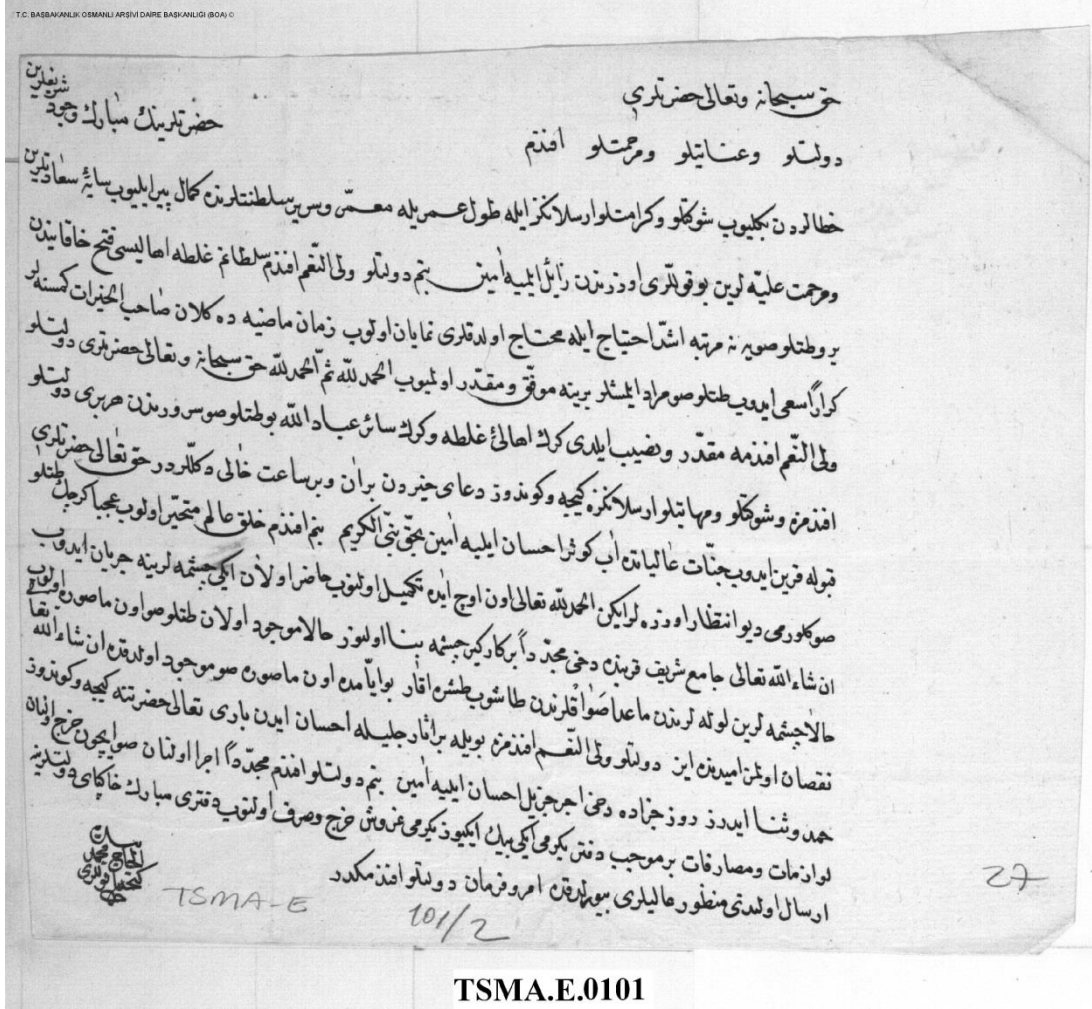 T.C. BAŞBAKANLIK OSMANLI ARŞİVİ DAİRE BAŞKANLIĞI (BOA) ©
حق سبحانه وتعالى حضرتلرى
دولتلو وعنايتلو ومرحمتلو افندم حضرتلرينك مبارك وجود شريفلرين
خطالردن بكليوب شوكتلو وكرامتلو ارسلانكز ايله طول عمريله معمّر وسرير سلطنتلرنده كمال پير ايليوب سايهٔ سعادتلرين
ومرحمت عليّه لرين بو قوللرى اوزرمزدن زايل ايلميه آمين بنم دولتلو ولى النّعم افندم سلطانم غلطه اهاليسى فتح خاقانيدن
برو طتلو صويه نه مرتبه اشدّ احتياج ايله محتاج اولدقلرى نمايان اولوب زمان ماضيه ده كلان صاحب الخيرات كمسنه لر
كراراً سعى ايدوب طتلو صو مراد ايلمشلر برينه موفّق ومقدّر اولميوب الحمد لله ثمّ الحمد لله حق سبحانه وتعالى حضرتلرى دولتلو
ولى النّعم افندمه مقدّر ونصيب ايلدى كرك اهالئ غلطه وكرك سائر عباد الله بو طتلو صو سرورمزدن هر برى دولتلو
افندمزه وشوكتلو ومهابتلو ارسلانكزه كيجه وكوندوز دعاى خيردن بر آن وبر ساعت خالى دكللردر حق تعالى حضرتلرى
قبوله قرين ايدوب جنّات عالياتده آب كوثر احسان ايليه آمين بحقّ نبىّ الكريم بنم افندم خلق عالم متحيّر اولوب عجبا كرچك طتلو
صو كلورمى ديو انتظار اوزره لر ايكن الحمد لله تعالى اون اوچ ايده تكميل اولنوب حاضر اولان ايكى چشمه لرينه جريان ايدوب
ان شاء الله تعالى جامع شريف قربنده دخى مجدّداً بر كاركير چشمه بنا اولنور حالا موجود اولان طتلو صو اون ماصوره اولوب
حالا چشمه لرين لوله لرندن ماعدا صواقلرندن طاشوب طشره اقار بو ايامده اون ماصوره صو موجود اولدقده ان شاء الله تعالى
نقصان اولمز اميدنده ايز دولتلو ولى النّعم افندمزه بويله بر اثار جليله احسان ايدن بارى تعالى حضرتنه كيجه وكوندوز
حمد وثنا ايدرز روز جزاده دخى اجر جزيل احسان ايليه آمين بنم دولتلو افندم مجدّداً اجرا اولنان صو ايچون خرج اولنان
لوازمات ومصارفات بر موجب دفتر يكرمى ايكى بيك ايكيوز يكرمى غروش خرج وصرف اولنوب دفترى مبارك خاكپاى دولتلرينه
ارسال اولندى منظور عاليلرى بيورلدقده امر وفرمان دولتلو افندمكدر
الحاج محمد
27
TSMA-E
101/2
TSMA.E.0101